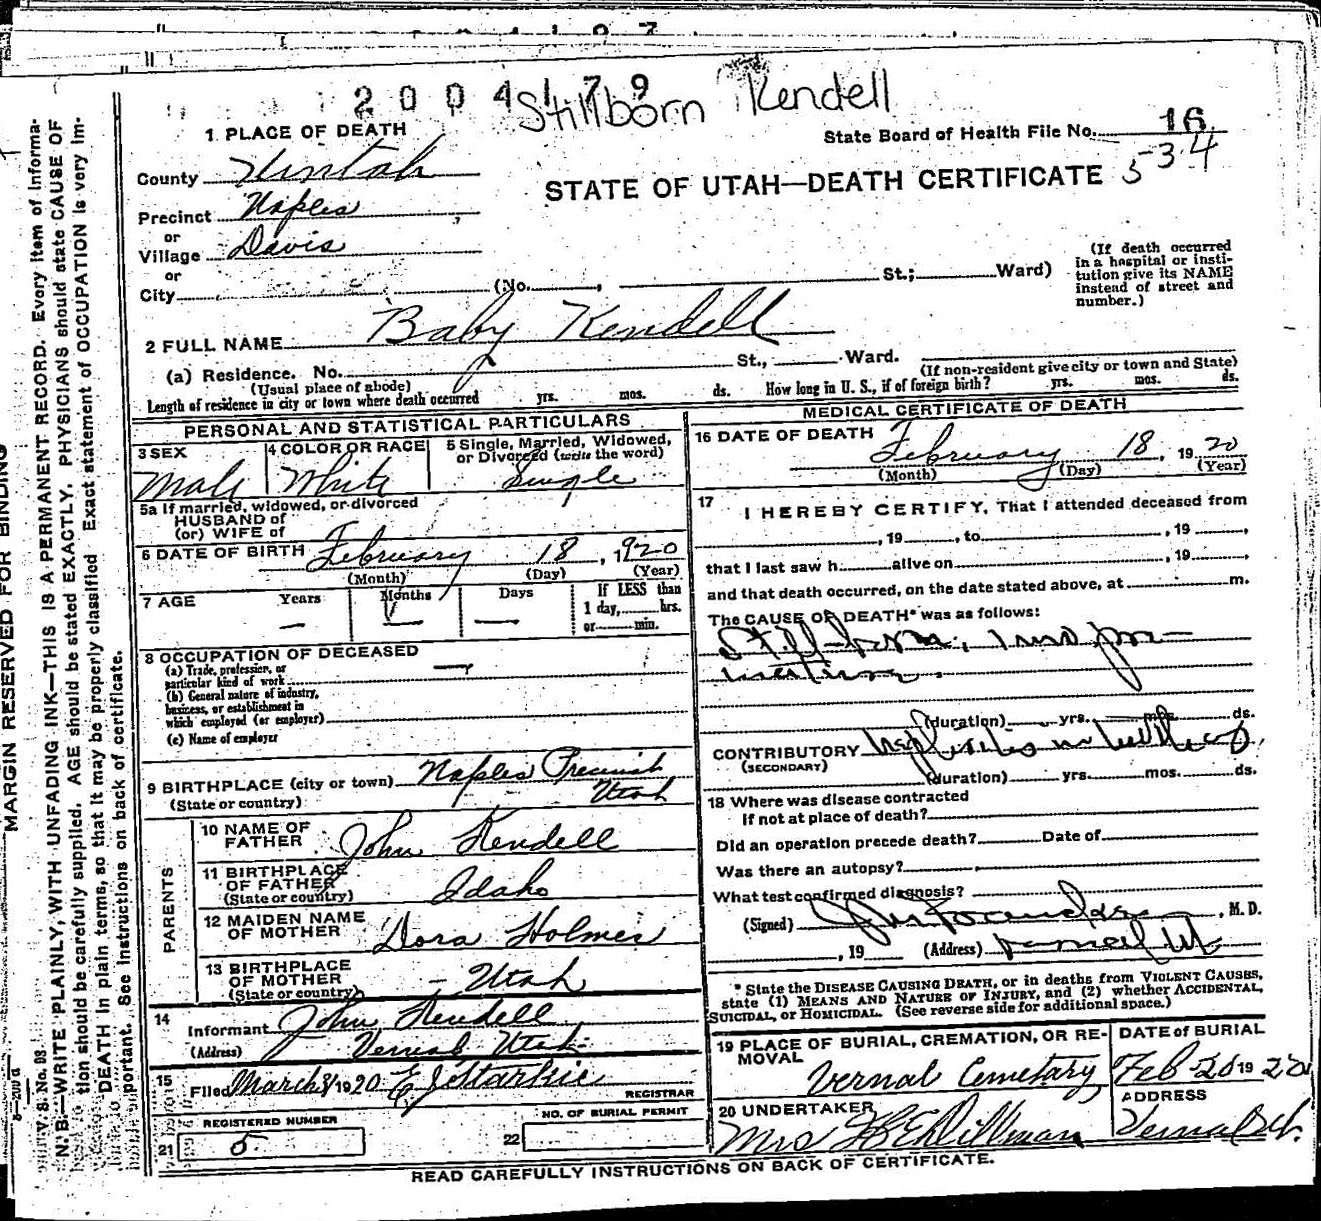 2004179
Stillborn Kendell
1 PLACE OF DEATH
State Board of Health File No. 16
534
County Uintah
STATE OF UTAH—DEATH CERTIFICATE
Precinct Naples
or
Village Davis
or
City (No. , St.; Ward)
(If death occurred in a hospital or institution give its NAME instead of street and number.)
2 FULL NAME Baby Kendell
(a) Residence. No. St., Ward.
(Usual place of abode)
(If non-resident give city or town and State)
Length of residence in city or town where death occurred yrs. mos. ds. How long in U. S., if of foreign birth? yrs. mos. ds.
PERSONAL AND STATISTICAL PARTICULARS
3 SEX
Male
4 COLOR OR RACE
White
5 Single, Married, Widowed,
or Divorced (write the word)
Single
5a If married, widowed, or divorced
HUSBAND of
(or) WIFE of
6 DATE OF BIRTH February 18, 1920
(Month) (Day) (Year)
7 AGE Years Months Days
If LESS than
1 day, hrs.
or min.
8 OCCUPATION OF DECEASED
(a) Trade, profession, or
particular kind of work
(b) General nature of industry,
business, or establishment in
which employed (or employer)
(c) Name of employer
9 BIRTHPLACE (city or town) Naples Precinct
(State or country) Utah
PARENTS
10 NAME OF
FATHER John Kendell
11 BIRTHPLACE
OF FATHER
(State or country) Idaho
12 MAIDEN NAME
OF MOTHER Dora Holmes
13 BIRTHPLACE
OF MOTHER
(State or country) - Utah
14
Informant John Kendell
(Address) Vernal Utah
15
Filed March 8/1920 E. J. Starkie
REGISTRAR
REGISTERED NUMBER
21 5
NO. OF BURIAL PERMIT
22
MEDICAL CERTIFICATE OF DEATH
16 DATE OF DEATH
February 18, 1920
(Month) (Day) (Year)
17
I HEREBY CERTIFY, That I attended deceased from
, 19 , to , 19 ,
that I last saw h alive on , 19 ,
and that death occurred, on the date stated above, at m.
The CAUSE OF DEATH* was as follows:
Still-born;
(duration) yrs. mos. ds.
CONTRIBUTORY
(SECONDARY)
(duration) yrs. mos. ds.
18 Where was disease contracted
If not at place of death?
Did an operation precede death? Date of
Was there an autopsy?
What test confirmed diagnosis?
(Signed) , M. D.
, 19 (Address) Vernal Ut
* State the DISEASE CAUSING DEATH, or in deaths from VIOLENT CAUSES,
state (1) MEANS AND NATURE OF INJURY, and (2) whether ACCIDENTAL,
SUICIDAL, or HOMICIDAL. (See reverse side for additional space.)
19 PLACE OF BURIAL, CREMATION, OR RE-
MOVAL
Vernal Cemetary
DATE of BURIAL
Feb 20 1920
20 UNDERTAKER
Mrs Dillman
ADDRESS
Vernal Ut.
READ CAREFULLY INSTRUCTIONS ON BACK OF CERTIFICATE.
MARGIN RESERVED FOR BINDING
V. S. No. 93
N. B.—WRITE PLAINLY, WITH UNFADING INK—THIS IS A PERMANENT RECORD. Every item of informa-
tion should be carefully supplied. AGE should be stated EXACTLY. PHYSICIANS should state CAUSE OF
DEATH in plain terms, so that it may be properly classified. Exact statement of OCCUPATION is very im-
portant. See instructions on back of certificate.